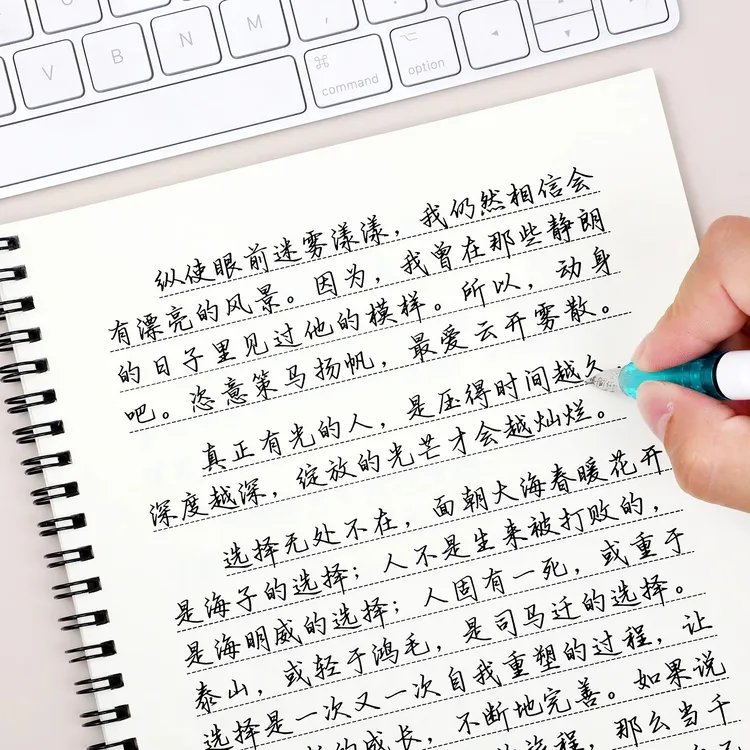 V
B
N
M
⌘
command
⌥
option
纵使眼前迷雾漾漾，我仍然相信会
有漂亮的风景。因为，我曾在那些静朗
的日子里见过他的模样。所以，动身
吧。恣意策马扬帆，最爱云开雾散。
真正有光的人，是压得时间越久
深度越深，绽放的光芒才会越灿烂。
选择无处不在，面朝大海春暖花开
是海子的选择；人不是生来被打败的，
是海明威的选择；人固有一死，或重于
泰山，或轻于鸿毛，是司马迁的选择。
选择是一次又一次自我重塑的过程，让
的成长，不断地完善。如果说
旅程，那么当千